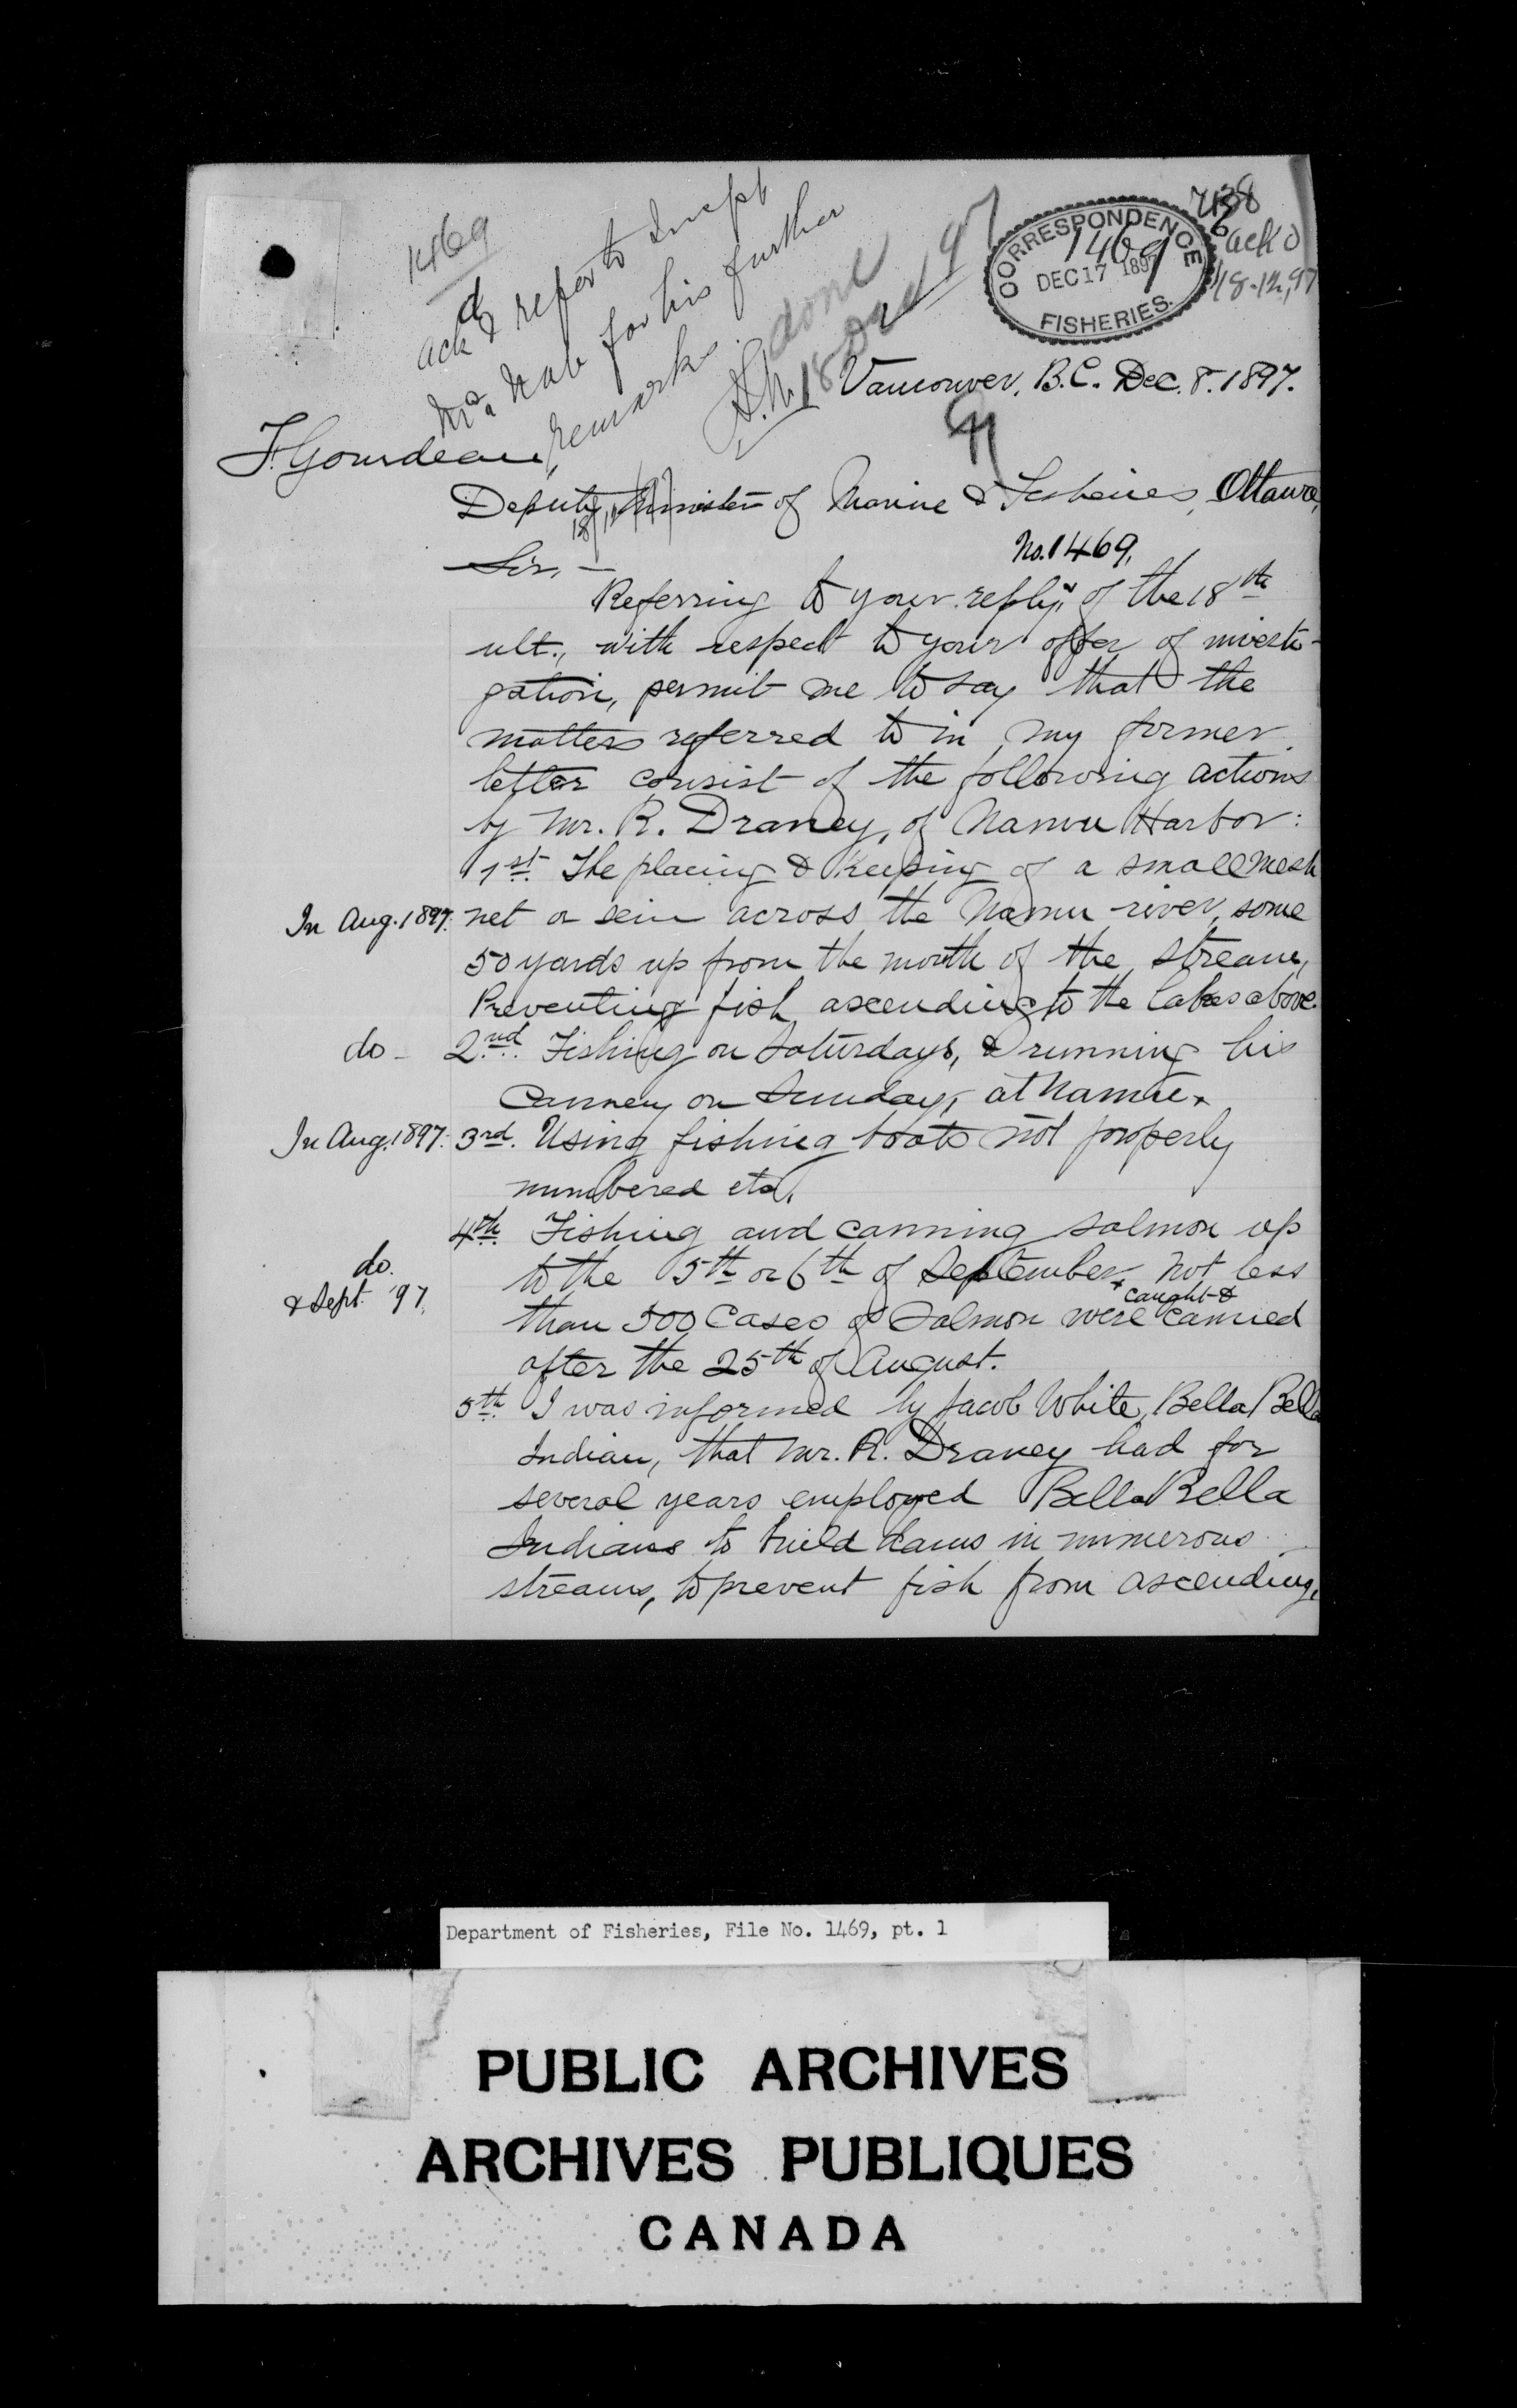 1469
Ack & refer to Insp
McNab for his further
remarks.
done
18 Dec 97
CORRESPONDENCE
1469
DEC 17 1897
FISHERIES.
ack'd
18.12.97
Vancouver, B.C. Dec. 8. 1897.
F. Gourdeau,
Deputy Minister of Marine & Fisheries, Ottawa,
Sir,—
No. 1469,
Referring to your reply, of the 18th
ult., with respect to your offer of investi-
gation, permit me to say that the
matters referred to in my former
letter consist of the following actions
by Mr. R. Draney, of Namu Harbor:
1st. The placing & keeping of a small mesh
In Aug. 1897. net or sein across the Namu river, some
50 yards up from the mouth of the stream,
Preventing fish ascending to the lakes above.
do - 2nd. Fishing on Saturdays, & running his
Cannery on Sunday, at Namu.
In Aug. 1897. 3rd. Using fishing boats not properly
numbered etc.
4th. Fishing and canning salmon up
do. to the 5th or 6th of September. Not less
& Sept. '97. than 500 Cases of Salmon were caught & canned
after the 25th of August.
5th. I was informed by Jacob White, Bella Bella
Indian, that Mr. R. Draney had for
several years employed Bella Bella
Indians to build dams in numerous
streams, to prevent fish from ascending,
Department of Fisheries, File No. 1469, pt. 1
PUBLIC ARCHIVES
ARCHIVES PUBLIQUES
CANADA